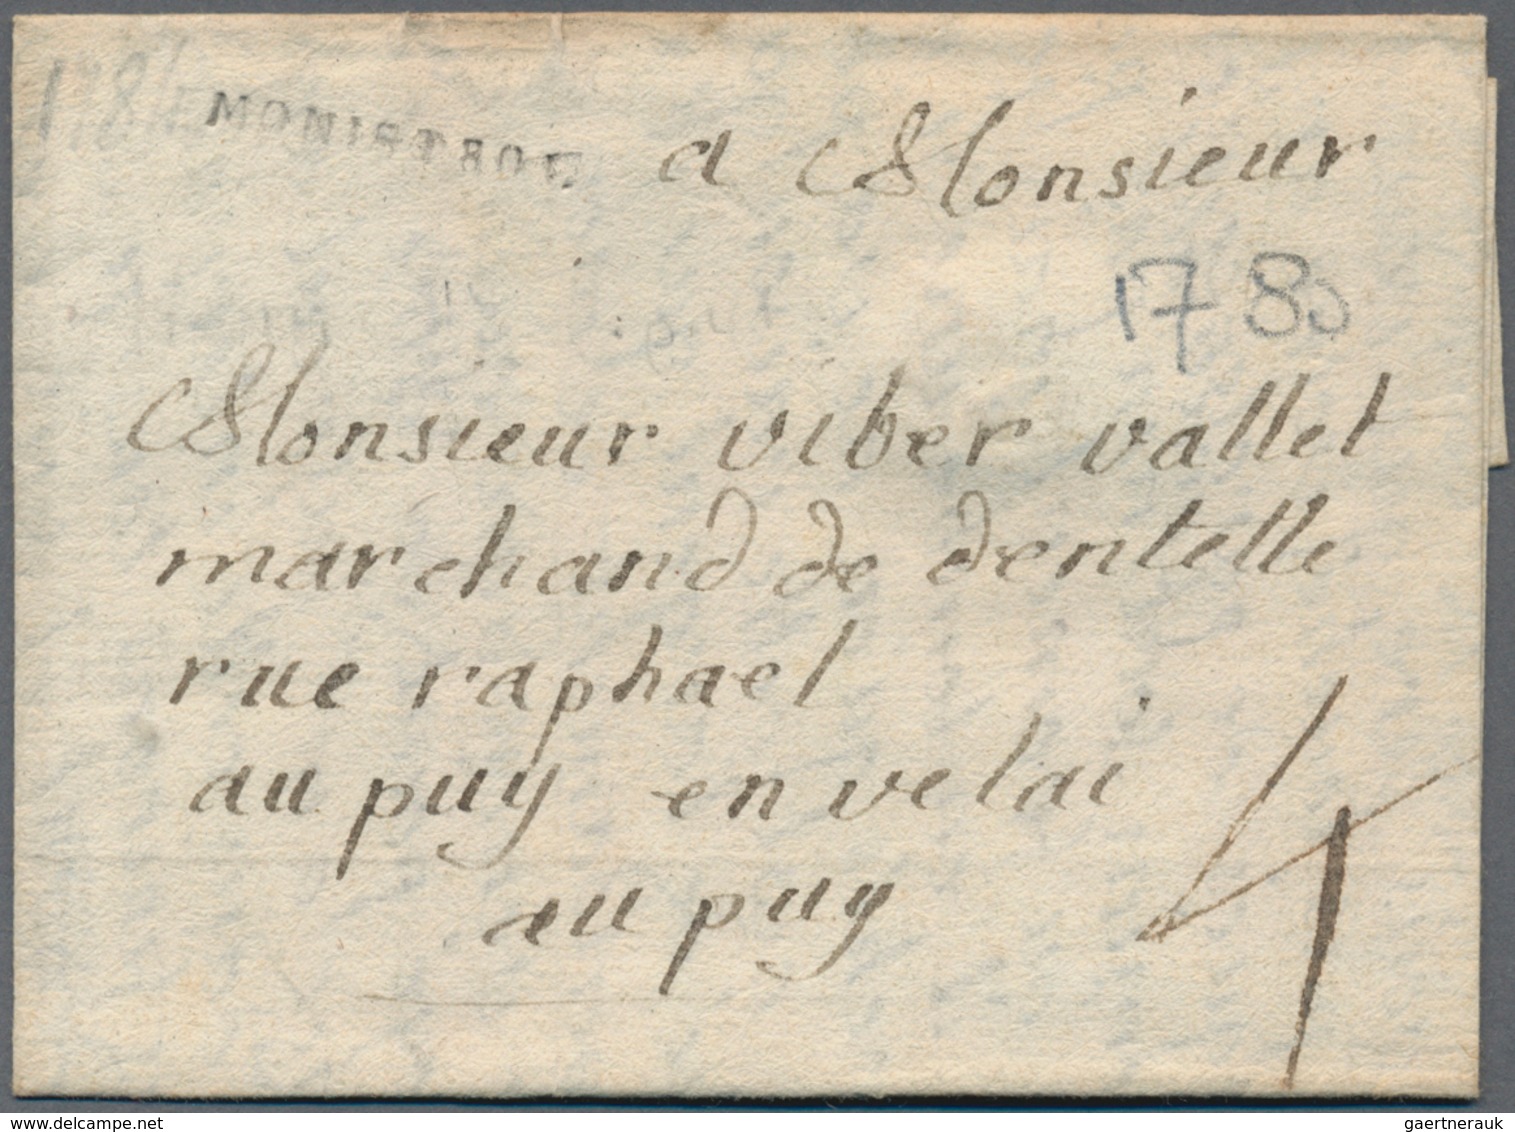 MONISTROL
a Monsieur
1780
Monsieur viber vallet
marchand de dentelle
rue raphael
au puy en velai
au puy
4
www.delcampe.net
gaertnerauk